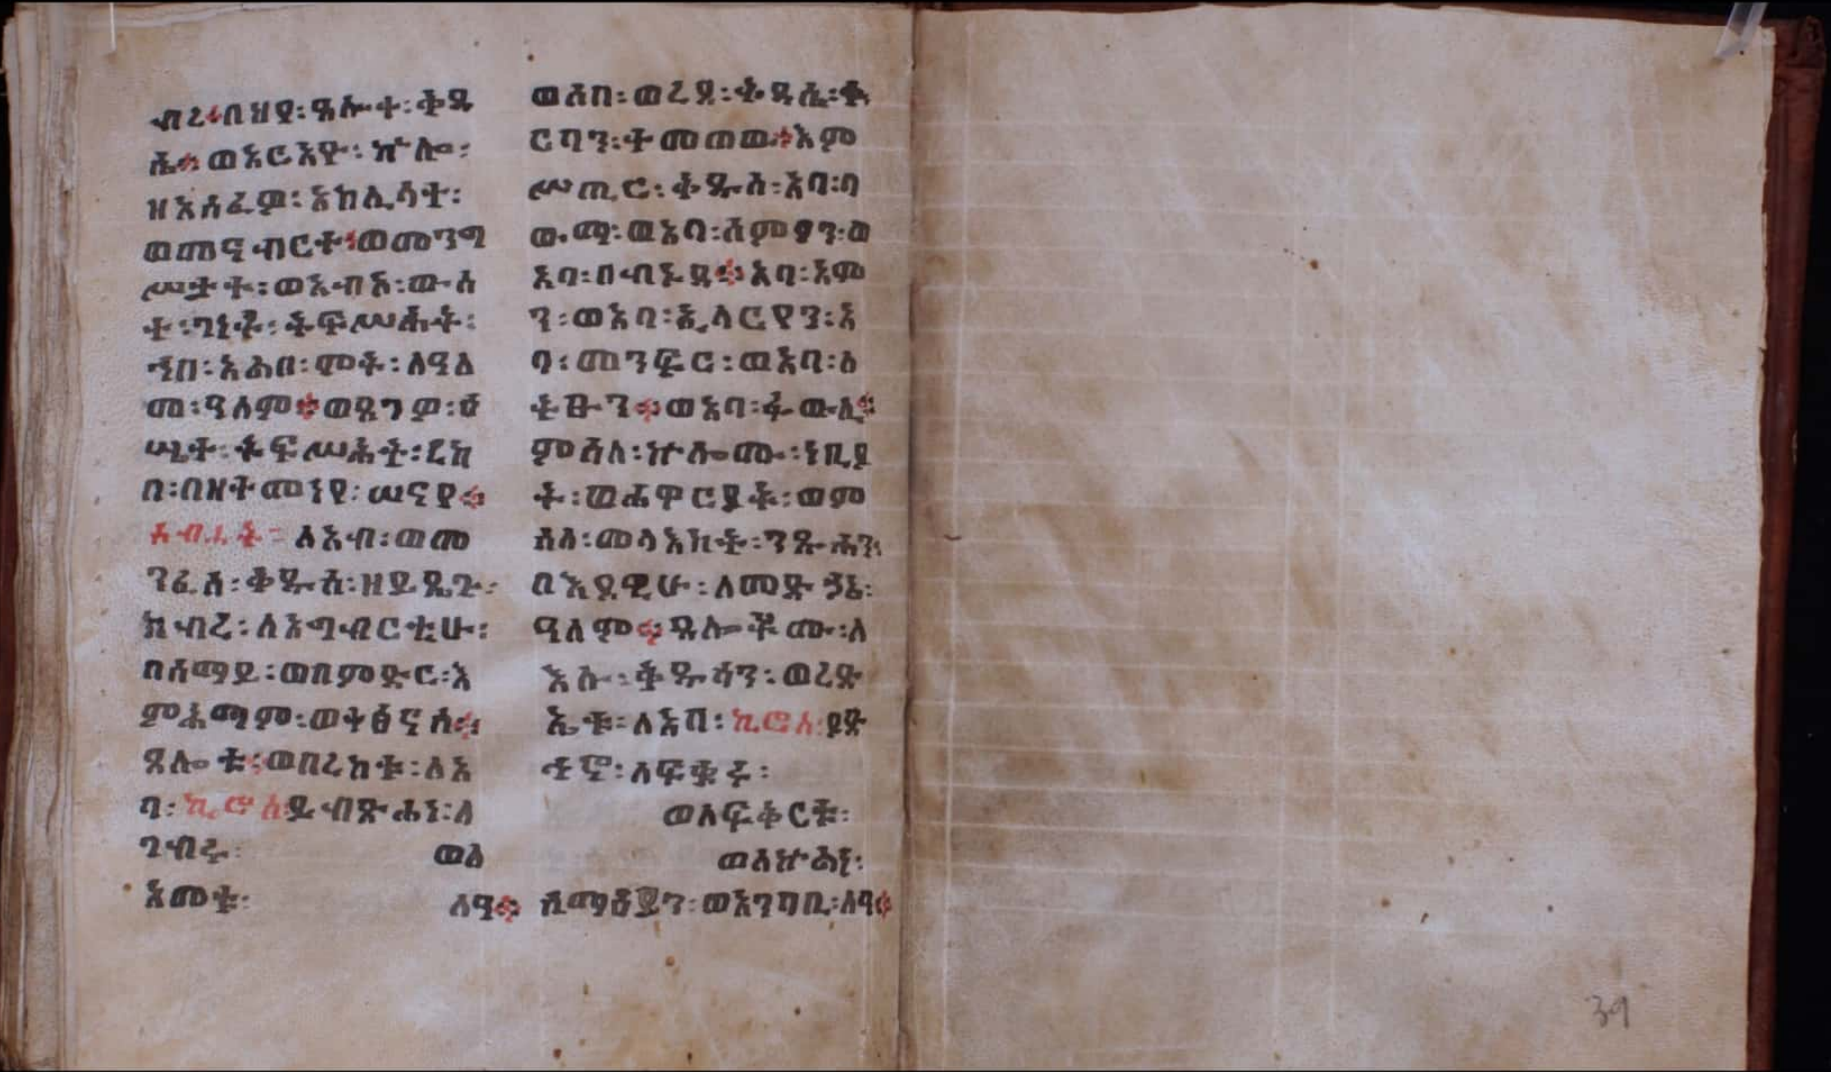 ብረ፡በህየ፡ጸሎተ፡ቅዳ
ሴ፡ወአርአዮ፡ኵሎ፡
ዘአሰፈዎ፡አክሊላት፡
ወመናብርት፡ወመንግ
ሥታት፡ወአብአ፡ውስ
ተ፡ገነት፡ትፍሥሕት፡
ኀበ፡አሕበ፡ሞት፡ለዓለ
መ፡ዓለም፡ወጸገዎ፡
ሤተ፡ትፍሥሕት፡ደከ
በ፡በዘተመነየ፡ሠናየ፡
ስብሐት፡ለአብ፡ወመ
ንፈስ፡ቅዱስ፡ዘይዴጉ፡
ክብረ፡ለአግብርቲሁ፡
በሰማይ፡ወበምድር፡እ
ምሕማም፡ወትፅናስ፡
ጸሎቱ፡ወበረከቱ፡ለአ
ባ፡ኪሮስ፡ይብጽሐነ፡ለ
ገብሩ፡ ወለ
አመቱ፡ ለዓ፡
ወሰበ፡ወረደ፡ቀዳሲ፡ቍ
ርባን፡ተመጠወ፡እም
ሥጢር፡ቅዱስ፡አባ፡ባ
ውማ፡ወአባ፡ለምፅን፡ወ
አባ፡በብኑዳ፡አባ፡እም
ን፡ወአባ፡ኢላርዮን፡አ
ባ፡መንፍር፡ወአባ፡ስ
ቲፁን፡ወአባ፡ፋውሊ፡
ምስለ፡ኵሎሙ፡ነቢያ
ት፡ወሐዋርያት፡ወም
ስለ፡መላእክት፡ንጹሐን፡
በእደዊሁ፡ለመድኃኔ፡
ዓለም፡ጸሎቶሙ፡ለ
እሉ፡ቅዱሳን፡ወረድ
ኤቱ፡ለአባ፡ኪሮስ፡ያጽ
ንኖ፡ለፍቁሩ፡
ወለፍቅርቱ፡
ወለኵሕነ፡
ሰማዕያን፡ወአንባቢ፡ለዓ፡
39